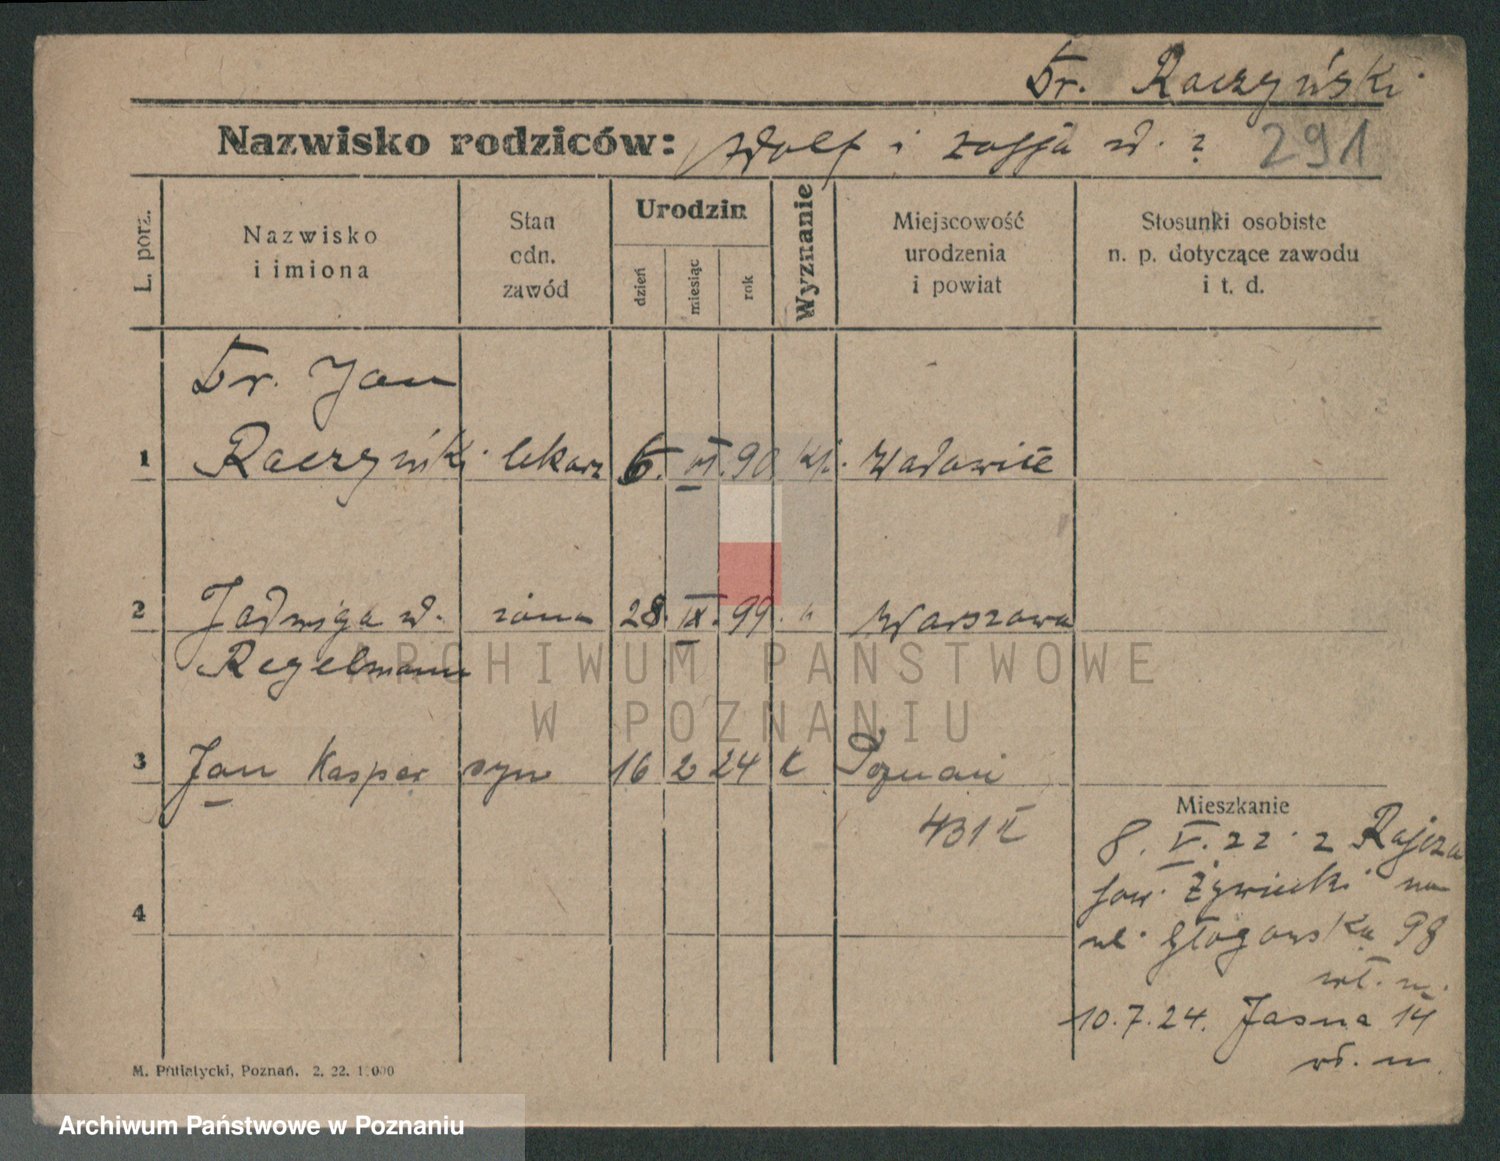 Dr. Raczyński
Nazwisko rodziców: Adolf i Zofja d. ? 291
L. porz.
Nazwisko
i imiona
Stan
odn.
zawód
Urodzin
dzień
miesiąc
rok
Wyznanie
Miejscowość
urodzenia
i powiat
Stosunki osobiste
n. p. dotyczące zawodu
i t. d.
Dr. Jan
1 Raczyński lekarz 6. VI. 90 kt. Wadowice
2 Jadwiga d. żona 28. IX. 99. " Warszawa
Regelmann
3 Jan Kasper syn 16 2 24 k Poznań
Mieszkanie
8. V. 22 z Rajcza
pow. Żywiecki na
4
ul. Głogowska 98
wł. m.
10.7.24. Jasna 14
wł. m.
M. Putiatycki, Poznań. 2. 22. 1000
ARCHIWUM PAŃSTWOWE
W POZNANIU
Archiwum Państwowe w Poznaniu